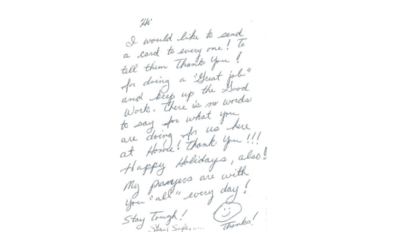 Hi
I would like to send
a card to every one! to
tell them Thank You!
for doing a "Great job"
and keep up the Good
Work. There is no words
to say for what you
are doing for us here
at Home! Thank you!!!
Happy Holidays, also!
My prayers are with
you "all" every day!
Stay Tough!
Thanks!